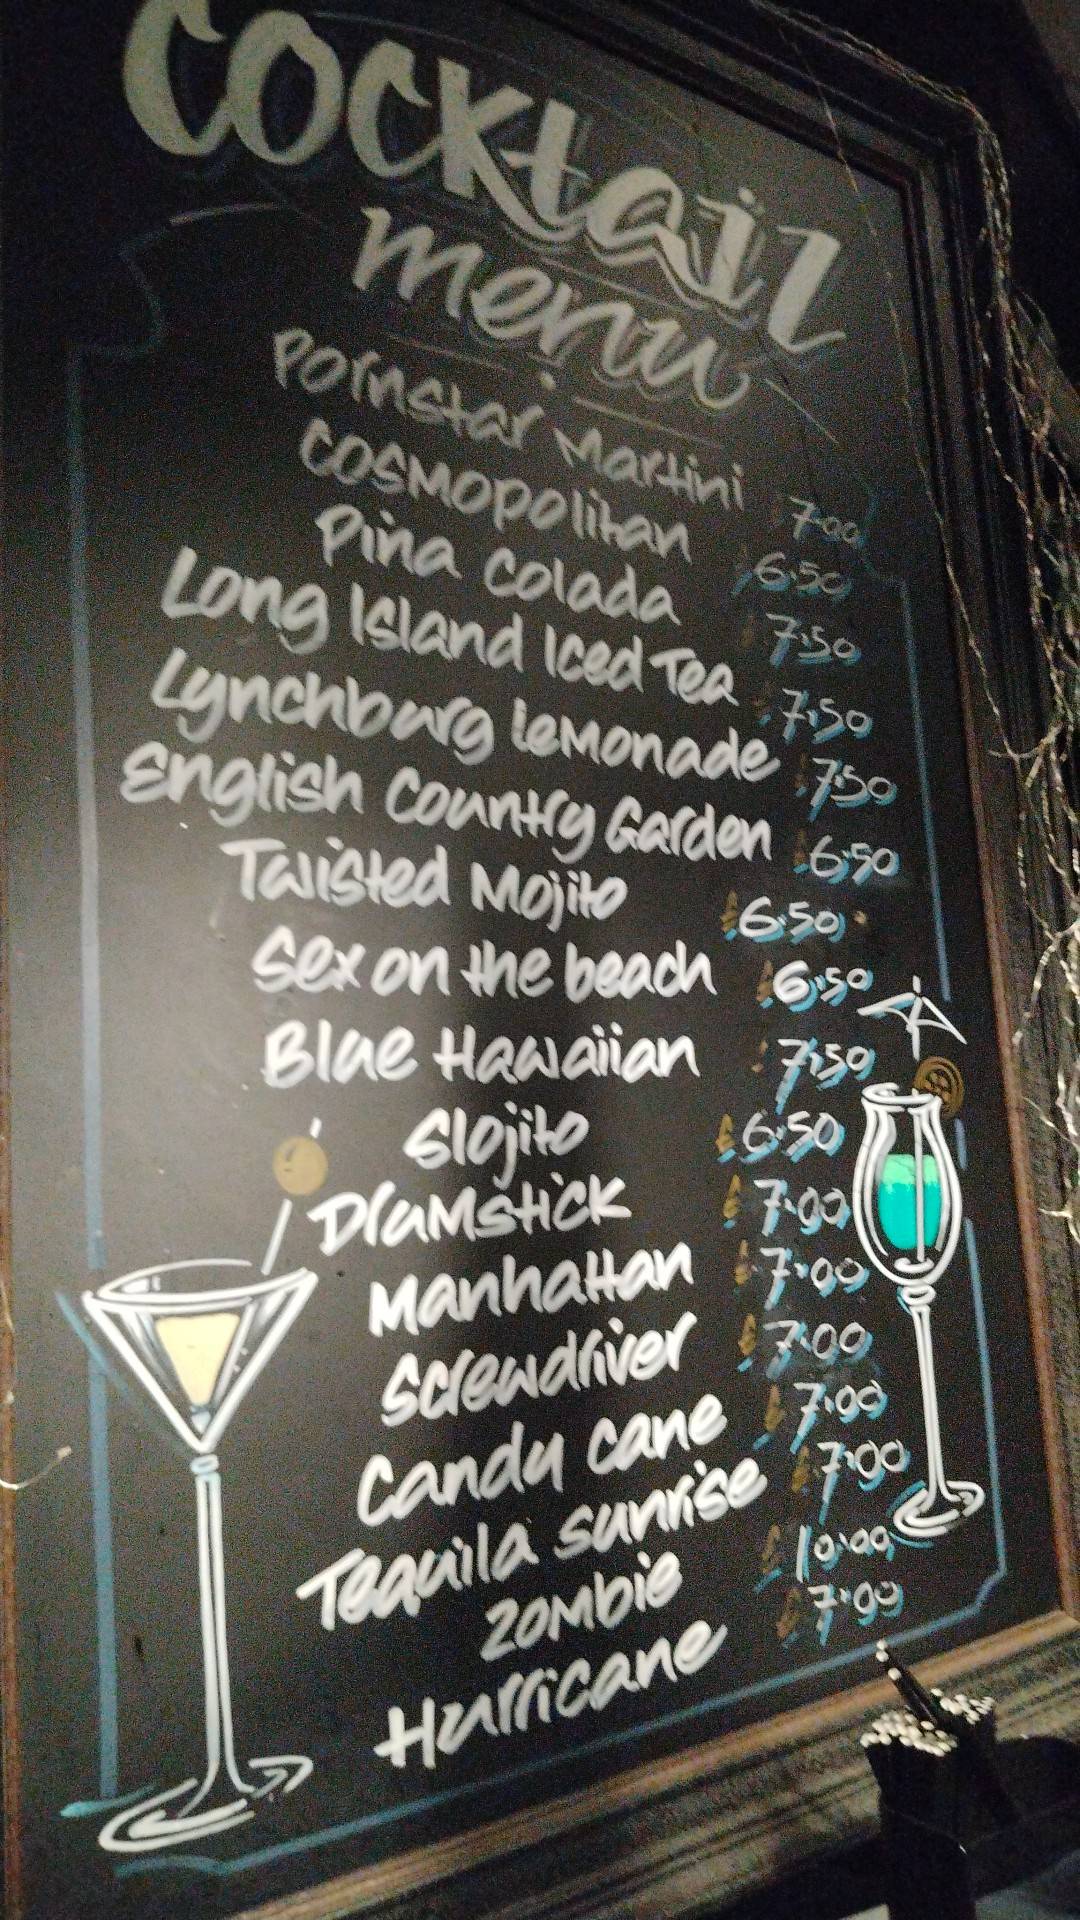 Cocktail
menu
Pornstar Martini 7.00
Cosmopolitan 6.50
Piña Colada 7.50
Long Island Iced Tea 7.50
Lynchburg Lemonade 7.50
English Country Garden 6.50
Twisted Mojito £6.50
Sex on the beach £6.50
Blue Hawaiian £7.50
Slojito £6.50
Dramstick £7.00
Manhattan £7.00
Screwdriver £7.00
Candy cane £7.00
Tequila sunrise £7.00
Zombie £10.00
Hurricane £7.00